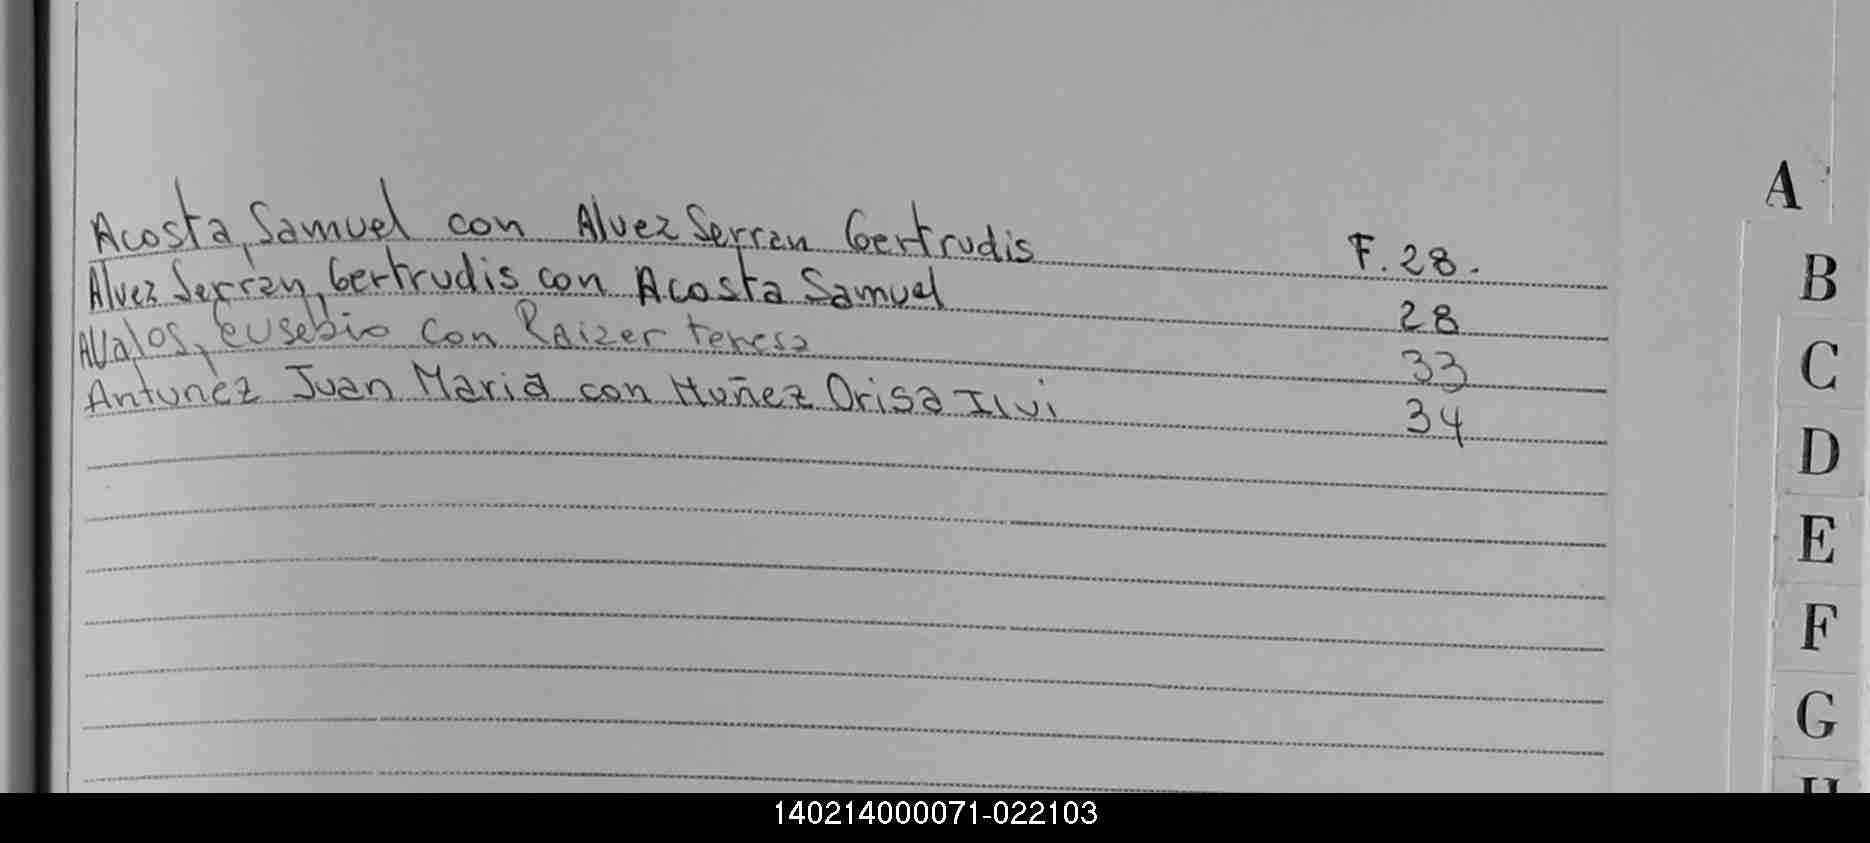 Acosta, Samuel con Alvez Serran Gertrudis F. 28.
Alvez Serran, Gertrudis con Acosta Samuel 28
Avalos, Eusebio con Raizer teresa 33
Antunez Juan Maria con Nuñez Orisa Ilvi 34
A
B
C
D
E
F
G
H
140214000071-022103